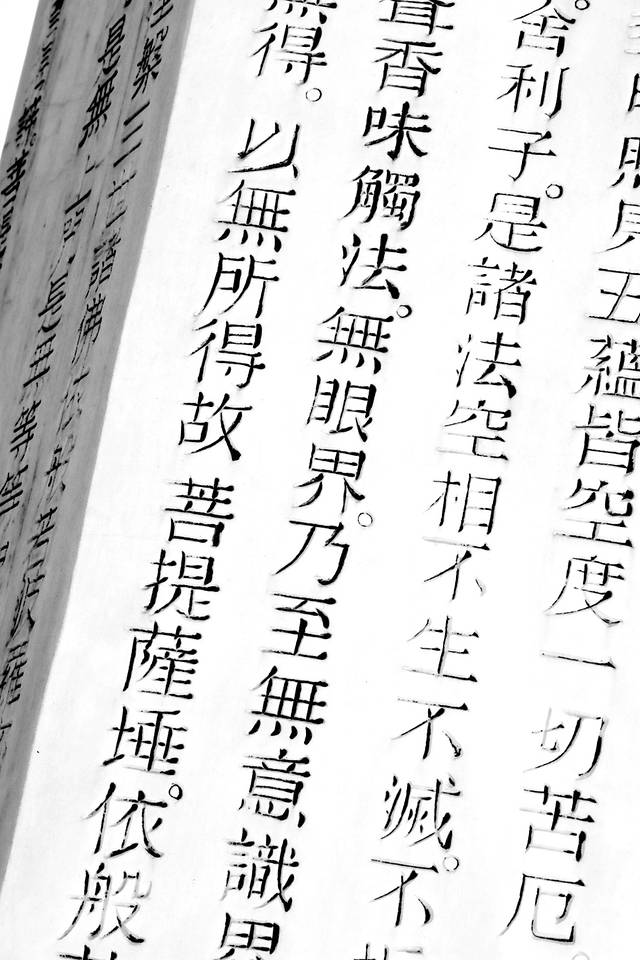 照見五蘊皆空度一切苦厄。
舍利子。是諸法空相不生不滅。不
聲香味觸法。無眼界。乃至無意識界
無得。以無所得故菩提薩埵。依般
涅槃三世諸佛依般若波羅
是無上咒是無等等